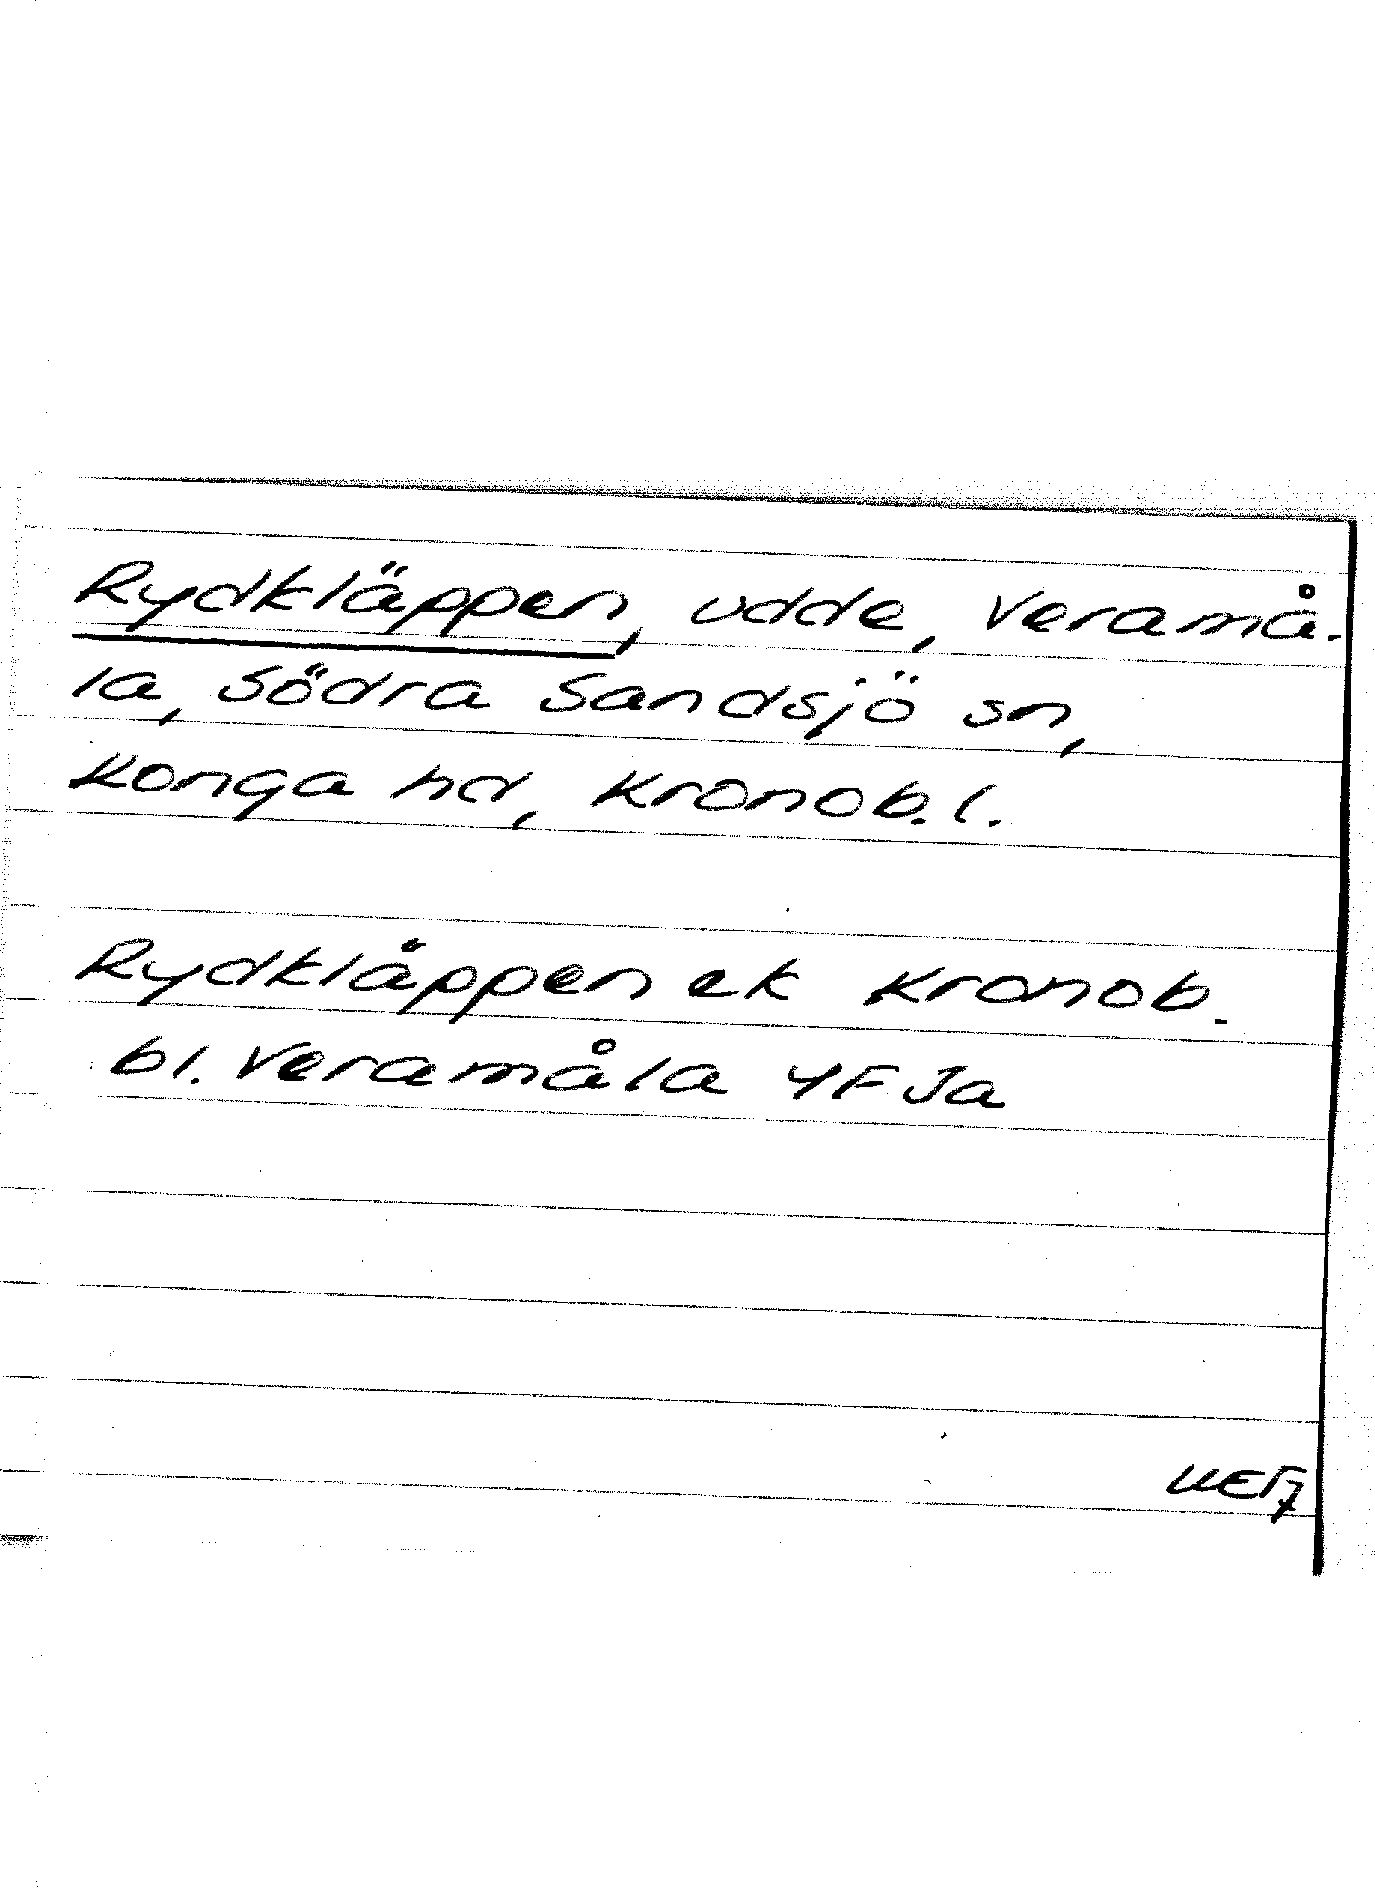 Rydkläppen, udde, Veramå-
la, Södra Sandsjö sn,
Konga hd, Kronob. l.
Rydkläppen ek Kronob.
bl. Veramåla 4F Ja